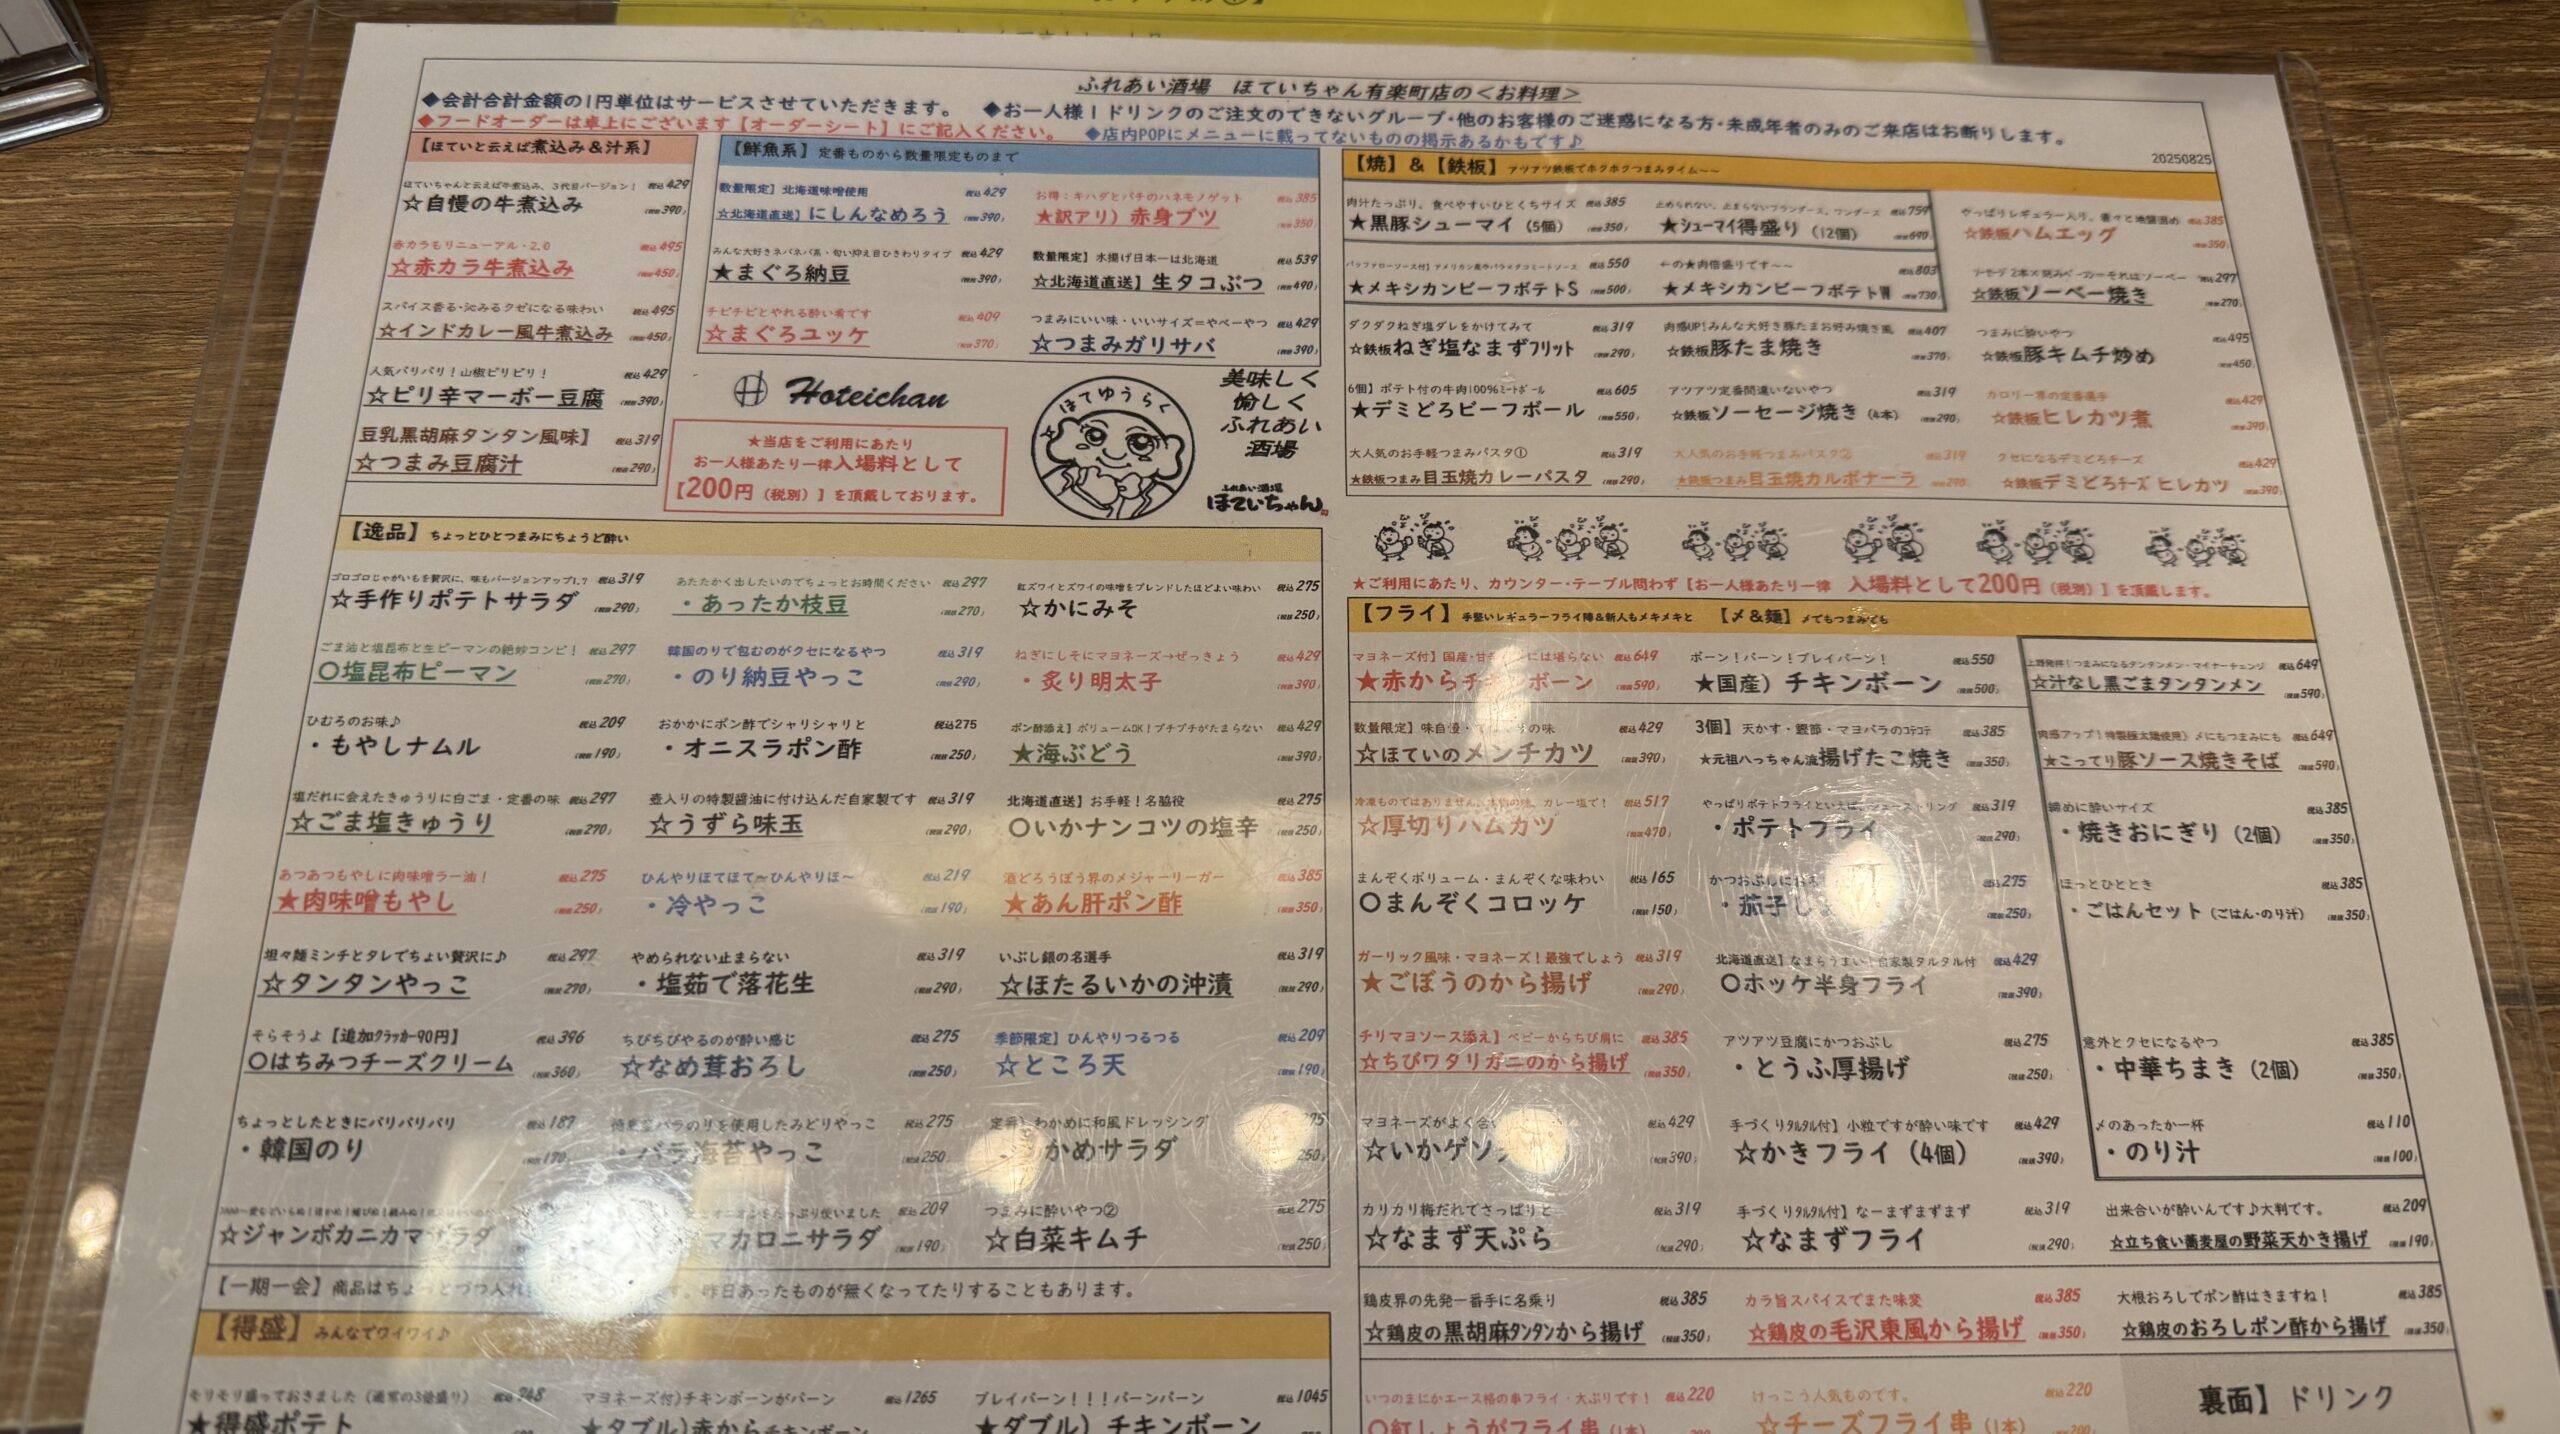 ふれあい酒場　ほていちゃん有楽町店の<お料理>
◆会計合計金額の1円単位はサービスさせていただきます。　◆お一人様1ドリンクのご注文のできないグループ・他のお客様のご迷惑になる方・未成年者のみのご来店はお断りします。
◆フードオーダーは卓上にございます【オーダーシート】にご記入ください。　◆店内POPにメニューに載ってないものの掲示あるかもです♪
20250825
【ほていと云えば煮込み＆汁系】
ほていちゃんと云えば牛煮込み、3代目バージョン！ 税込429
☆自慢の牛煮込み (税抜390)
赤カラもリニューアル・2.0 税込495
☆赤カラ牛煮込み (税抜450)
スパイス香る・沁みるクセになる味わい 税込495
☆インドカレー風牛煮込み (税抜450)
人気バリバリ！山椒ピリピリ！ 税込429
☆ピリ辛マーボー豆腐 (税抜390)
豆乳黒胡麻タンタン風味】 税込319
☆つまみ豆腐汁 (税抜290)
【鮮魚系】定番ものから数量限定ものまで
数量限定】北海道味噌使用 税込429
☆北海道直送】にしんなめろう (税抜390)
お得：キハダとバチのハネモノゲット 税込385
★訳アリ）赤身ブツ (税抜350)
みんな大好きネバネバ系・匂い抑え目ひきわりタイプ 税込429
★まぐろ納豆 (税抜390)
数量限定】水揚げ日本一は北海道 税込539
☆北海道直送】生タコぶつ (税抜490)
チビチビとやれる酔い肴です 税込409
☆まぐろユッケ (税抜370)
つまみにいい味・いいサイズ=やべーやつ 税込429
☆つまみガリサバ (税抜390)
Hoteichan
★当店をご利用にあたり
お一人様あたり一律入場料として
【200円（税別）】を頂戴しております。
ほてゆうらく
美味しく
愉しく
ふれあい
酒場
ふれあい酒場
ほていちゃん
【焼】＆【鉄板】アツアツ鉄板でホクホクつまみタイム～～
肉汁たっぷり、食べやすいひとくちサイズ 税込385
★黒豚シューマイ（5個） (税抜350)
止められない、止まらない 税込759
★シューマイ得盛り（12個） (税抜690)
税込385
☆鉄板ハムエッグ (税抜350)
税込550
★メキシカンビーフポテトS (税抜500)
←の★肉倍盛りです～～ 税込803
★メキシカンビーフポテトW (税抜730)
税込297
☆鉄板ソーベー焼き (税抜270)
ダクダクねぎ塩ダレをかけてみて 税込319
☆鉄板ねぎ塩なまずフリット (税抜290)
肉感UP！みんな大好き豚たまお好み焼き風 税込407
☆鉄板豚たま焼き (税抜370)
つまみに酔いやつ 税込495
☆鉄板豚キムチ炒め (税抜450)
6個】ポテト付の牛肉100%ミートボール 税込605
★デミどろビーフボール (税抜550)
アツアツ定番間違いないやつ 税込319
☆鉄板ソーセージ焼き（4本） (税抜290)
カロリー界の定番選手 税込429
☆鉄板ヒレカツ煮 (税抜390)
大人気のお手軽つまみパスタ① 税込319
★鉄板つまみ目玉焼カレーパスタ (税抜290)
大人気のお手軽つまみパスタ② 税込319
★鉄板つまみ目玉焼カルボナーラ (税抜290)
クセになるデミどろチーズ 税込429
☆鉄板デミどろチーズヒレカツ (税抜390)
★ご利用にあたり、カウンター・テーブル問わず【お一人様あたり一律　入場料として200円（税別）】を頂戴します。
【逸品】ちょっとひとつまみにちょうど酔い
ゴロゴロじゃがいもを贅沢に、味もバージョンアップ1.7 税込319
☆手作りポテトサラダ (税抜290)
あたたかく出したいのでちょっとお時間ください 税込297
・あったか枝豆 (税抜270)
紅ズワイとズワイの味噌をブレンドしたほどよい味わい 税込275
☆かにみそ (税抜250)
ごま油と塩昆布と生ピーマンの絶妙コンビ！ 税込297
○塩昆布ピーマン (税抜270)
韓国のりで包むのがクセになるやつ 税込319
・のり納豆やっこ (税抜290)
ねぎにしそにマヨネーズ→ぜっきょう 税込429
・炙り明太子 (税抜390)
ひむろのお味♪ 税込209
・もやしナムル (税抜190)
おかかにポン酢でシャリシャリと 税込275
・オニスラポン酢 (税抜250)
ポン酢添え】ボリュームOK！プチプチがたまらない 税込429
★海ぶどう (税抜390)
塩だれに会えたきゅうりに白ごま・定番の味 税込297
☆ごま塩きゅうり (税抜270)
壺入りの特製醤油に付け込んだ自家製です 税込319
☆うずら味玉 (税抜290)
北海道直送】お手軽！名脇役 税込275
○いかナンコツの塩辛 (税抜250)
あつあつもやしに肉味噌ラー油！ 税込275
★肉味噌もやし (税抜250)
ひんやりほてほて～ひんやりほ～ 税込219
・冷やっこ (税抜190)
酒どろうぼう界のメジャーリーガー 税込385
★あん肝ポン酢 (税抜350)
坦々麺ミンチとタレでちょい贅沢に♪ 税込297
☆タンタンやっこ (税抜270)
やめられない止まらない 税込319
・塩茹で落花生 (税抜290)
いぶし銀の名選手 税込319
☆ほたるいかの沖漬 (税抜290)
そらそうよ【追加クラッカー90円】 税込396
○はちみつチーズクリーム (税抜360)
ちびちびやるのが酔い感じ 税込275
☆なめ茸おろし (税抜250)
季節限定】ひんやりつるつる 税込209
☆ところ天 (税抜190)
ちょっとしたときにパリパリパリ 税込187
・韓国のり (税抜170)
バラのりを使用したみどりやっこ 税込275
・バラ海苔やっこ (税抜250)
定番）わかめに和風ドレッシング
かめサラダ
☆ジャンボカニカマサラダ
オニオンをたっぷり使いました 税込209
マカロニサラダ (税抜190)
つまみに酔いやつ② 税込275
☆白菜キムチ (税抜250)
【一期一会】商品はちょっとづつ入れ す。昨日あったものが無くなってたりすることもあります。
【フライ】手堅いレギュラーフライ陣＆新人もメキメキと　【〆＆麺】〆てもつまみても
マヨネーズ付】国産・甘 には堪らない 税込649
★赤からチキンボーン (税抜590)
ボーン！バーン！ブレイバーン！ 税込550
★国産）チキンボーン (税抜500)
税込649
☆汁なし黒ごまタンタンメン (税抜590)
数量限定】味自慢・ の味 税込429
☆ほていのメンチカツ (税抜390)
3個】天かす・鰹節・マヨバラのコテコテ 税込385
★元祖八っちゃん流揚げたこ焼き (税抜350)
肉感アップ！特製極太麺使用）〆にもつまみにも 税込649
★こってり豚ソース焼きそば (税抜590)
冷凍ものではありません、 の味、カレー塩で！ 税込517
☆厚切りハムカツ (税抜470)
やっぱりポテトフライといえば シューストリング 税込319
・ポテトフライ (税抜290)
締めに酔いサイズ 税込385
・焼きおにぎり（2個） (税抜350)
まんぞくボリューム・まんぞくな味わい 税込165
○まんぞくコロッケ (税抜150)
かつおぶしにお 税込275
・茄子し (税抜250)
ほっとひととき 税込385
・ごはんセット（ごはん・のり汁） (税抜350)
ガーリック風味・マヨネーズ！最強でしょう 税込319
★ごぼうのから揚げ (税抜290)
北海道直送】なまらうまい！自家製タルタル付 税込429
○ホッケ半身フライ (税抜390)
チリマヨソース添え】ベビーからちび肩に 税込385
☆ちびワタリガニのから揚げ (税抜350)
アツアツ豆腐にかつおぶし 税込275
・とうふ厚揚げ (税抜250)
意外とクセになるやつ 税込385
・中華ちまき（2個） (税抜350)
マヨネーズがよく合 税込429
☆いかゲソ (税抜390)
手づくりタルタル付】小粒ですが酔い味です 税込429
☆かきフライ（4個） (税抜390)
〆のあったか一杯 税込110
・のり汁 (税抜100)
カリカリ梅だれでさっぱりと 税込319
☆なまず天ぷら (税抜290)
手づくりタルタル付】なーまずまずまず 税込319
☆なまずフライ (税抜290)
出来合いが酔いんです♪大判です。 税込209
☆立ち食い蕎麦屋の野菜天かき揚げ (税抜190)
鶏皮界の先発一番手に名乗り 税込385
☆鶏皮の黒胡麻タンタンから揚げ (税抜350)
カラ旨スパイスでまた味変 税込385
☆鶏皮の毛沢東風から揚げ (税抜350)
大根おろしでポン酢はきますね！ 税込385
☆鶏皮のおろしポン酢から揚げ (税抜350)
いつのまにかエース格の串フライ・大ぶりです！ 税込220
○紅しょうがフライ串（1本）
けっこう人気ものです。 税込220
☆チーズフライ串（1本）
裏面】ドリンク
【得盛】みんなでワイワイ♪
モリモリ盛っておきました（通常の3倍盛り）
★得盛ポテト
マヨネーズ付）チキンボーンがバーン 税込1265
★ダブル）赤からチキンボーン
ブレイバーン！！！バーンバーン 税込1045
★ダブル）チキンボーン